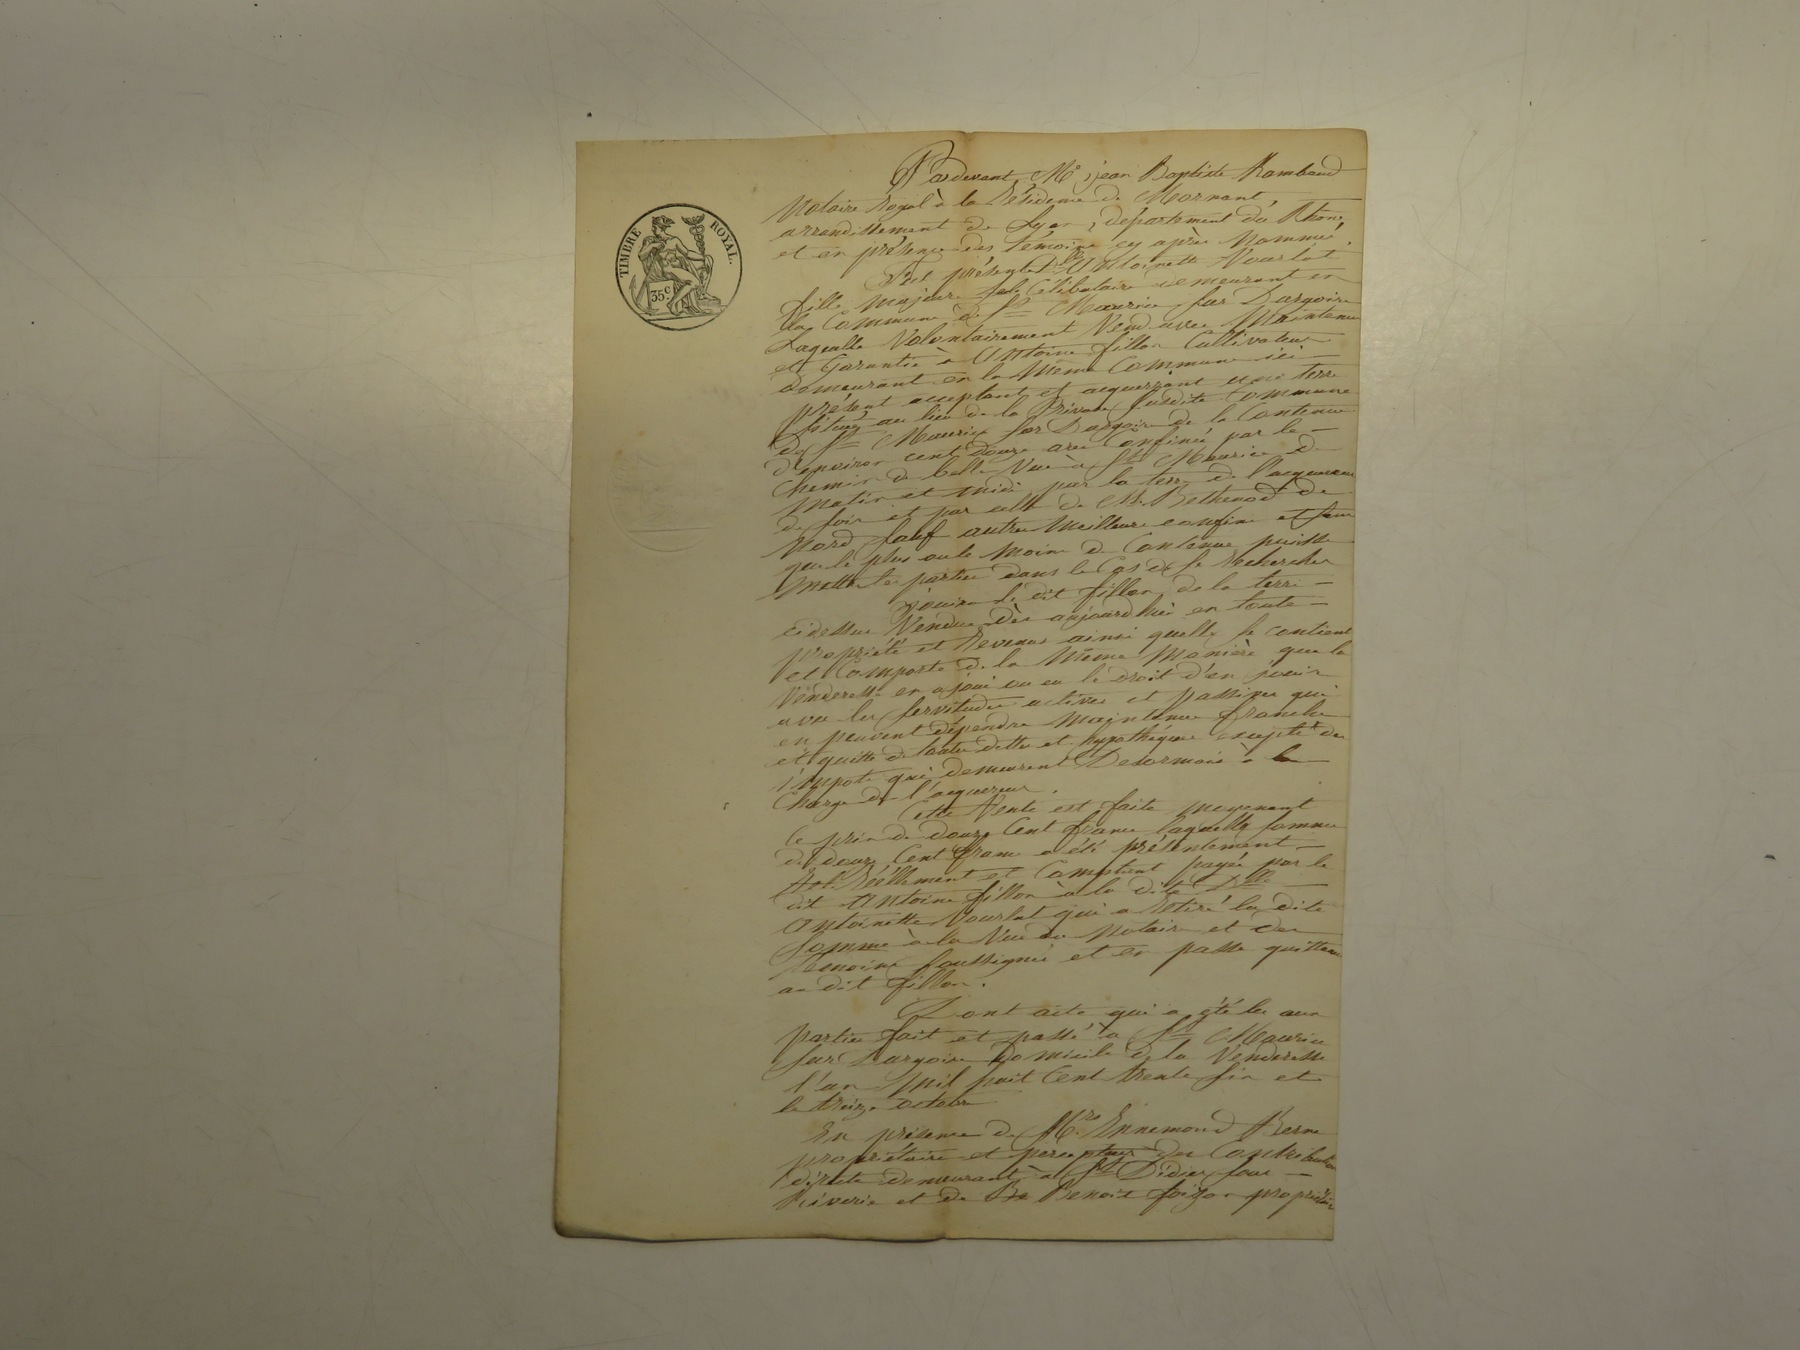 TIMBRE ROYAL.
35c
Pardevant Me jean Baptiste Rambaud
Notaire Royal à la Résidence de Mornant,
arrondissement de Lyon, département du Rhône,
et en présence des témoins cy après Nommés.
Est présente Dlle Antoinette Vourlat
fille majeure célibataire demeurant en
la Commune de St Maurice sur Dargoire
Laquelle Volontairement Vend avec Maintenue
et Garantie à Antoine fillon Cultivateur
demeurant en la Même Commune ici
présent acceptant et acquerrant une terre
située au lieu de la susdite Commune
de St Maurice sur Dargoire de la Contenue
d'environ cent douze ares Confinée par le
Chemin de belle Vue à St Maurice de
Matin et midi par la terre de l'acquereur
de soir et par celle de Mr. Bethenod de
Nord sauf autres Meilleurs confins et sans
que le plus ou le Moins de Contenue puisse
Mettre les parties dans le Cas de se Rechercher
jouira le dit fillon de la terre
cidessus Vendue dès aujourdhui en toute
propriété et Revenus ainsi quelle se contient
et Comporte de la Même Manière que la
Venderesse en a joui ou eu le droit d'en jouir
avec les servitudes actives et passives qui
en peuvent dépendre Maintenue franche
et quitte de toutes dettes et hypothéques excepté des
impots qui demeurent Desormais à la
Charge de l'acquereur.
Cette Vente est faite moyenant
le prix de douze Cent francs laquelle somme
de douze Cent francs a été présentement
Réellement et Comptant payée par le
dit Antoine fillon à la dite Dlle
Antoinette Vourlat qui a Retiré la dite
somme à la Vue du Notaire et des
temoins soussignés et en passe quittance
au dit fillon.
Dont acte qui a été lu aux
parties fait et passé à St Maurice
sur Dargoire Domicile de la Venderesse
l'an Mil huit Cent trente six et
le treize octobre
En présence de Mrs Ennemond Berne
propriétaire et percepteur des Contributions
directes demeurant à St Didier sous
Riverie et de Benoit propriétaire